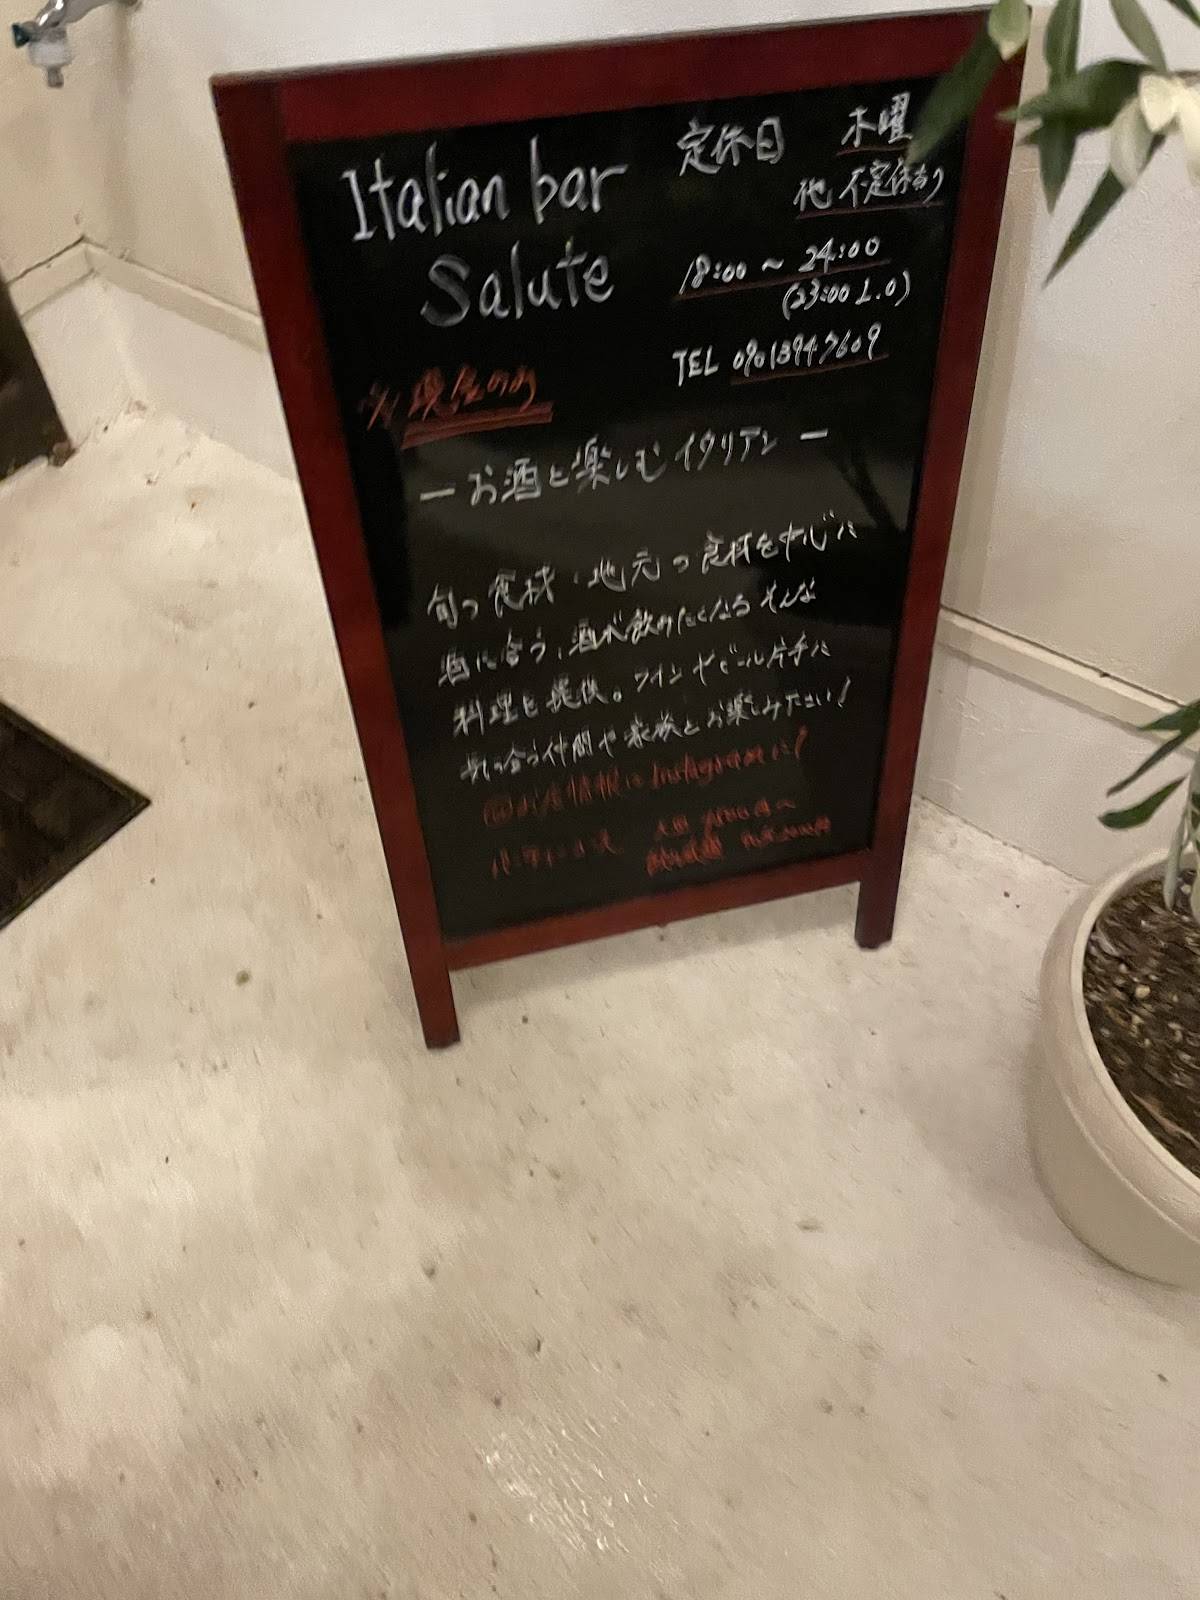 Italian bar
Salute
定休日 木曜
他 不定休あり
18:00 ~ 24:00
(23:00 L.O)
TEL 09013947609
現金のみ
ーお酒と楽しむイタリアンー
旬の食材・地元の食材を中心に
酒に合う、酒が飲みたくなるそんな
料理を提供。ワインやビール片手に
気の合う仲間や家族とお楽しみ下さい!
お店情報は Instagramに!
パーティーコース
飲み放題